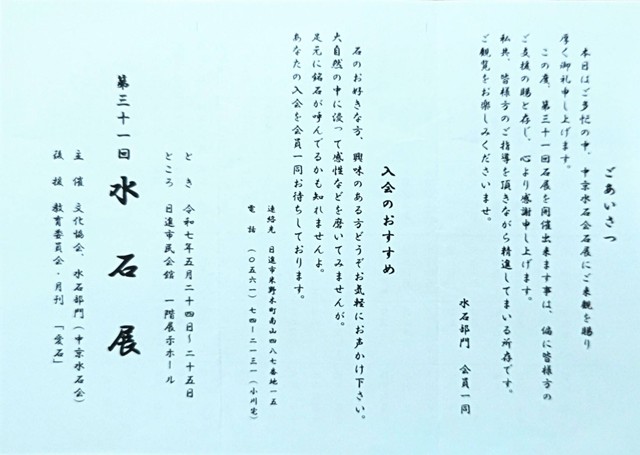 ごあいさつ
本日はご多忙の中、中京水石会石展にご来観を賜り
厚く御礼申し上げます。
この度、第三十一回石展を開催出来ます事は、偏に皆様方の
ご支援の賜と存じ、心より感謝申し上げます。
私共、皆様方のご指導を頂きながら精進してまいる所存です。
ご観覧をお楽しみくださいませ。
水石部門 会員一同
入会のおすすめ
石のお好きな方、興味のある方どうぞお気軽にお声かけ下さい。
大自然の中に浸って感性などを磨いてみませんか。
足元に銘石が呼んでるかも知れませんよ。
あなたの入会を会員一同お待ちしております。
連絡先 日進市米野木町南山四八七番地一五
電 話 (〇五六一) 七四ー二一三一(小川宅)
第三十一回 水石展
と き 令和七年五月二十四日〜二十五日
ところ 日進市民会館 一階展示ホール
主 催 文化協会、水石部門(中京水石会)
後 援 教育委員会・月刊 「愛石」